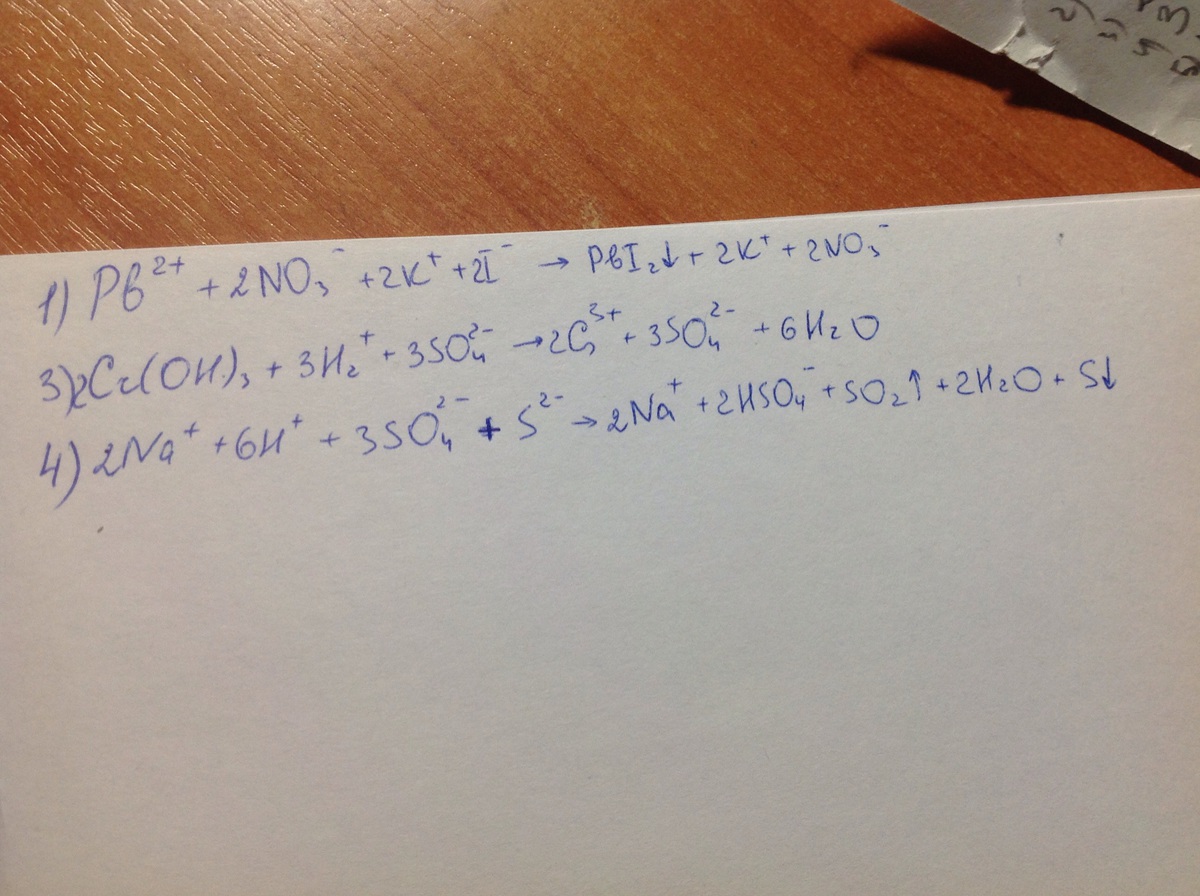 1) Pb²⁺ + 2NO₃⁻ + 2K⁺ + 2I⁻ → PbI₂↓ + 2K⁺ + 2NO₃⁻
3) 2Cr(OH)₃ + 3H₂⁺ + 3SO₄²⁻ → 2Cr³⁺ + 3SO₄²⁻ + 6H₂O
4) 2Na⁺ + 6H⁺ + 3SO₄²⁻ + S²⁻ → 2Na⁺ + 2HSO₄⁻ + SO₂↑ + 2H₂O + S↓